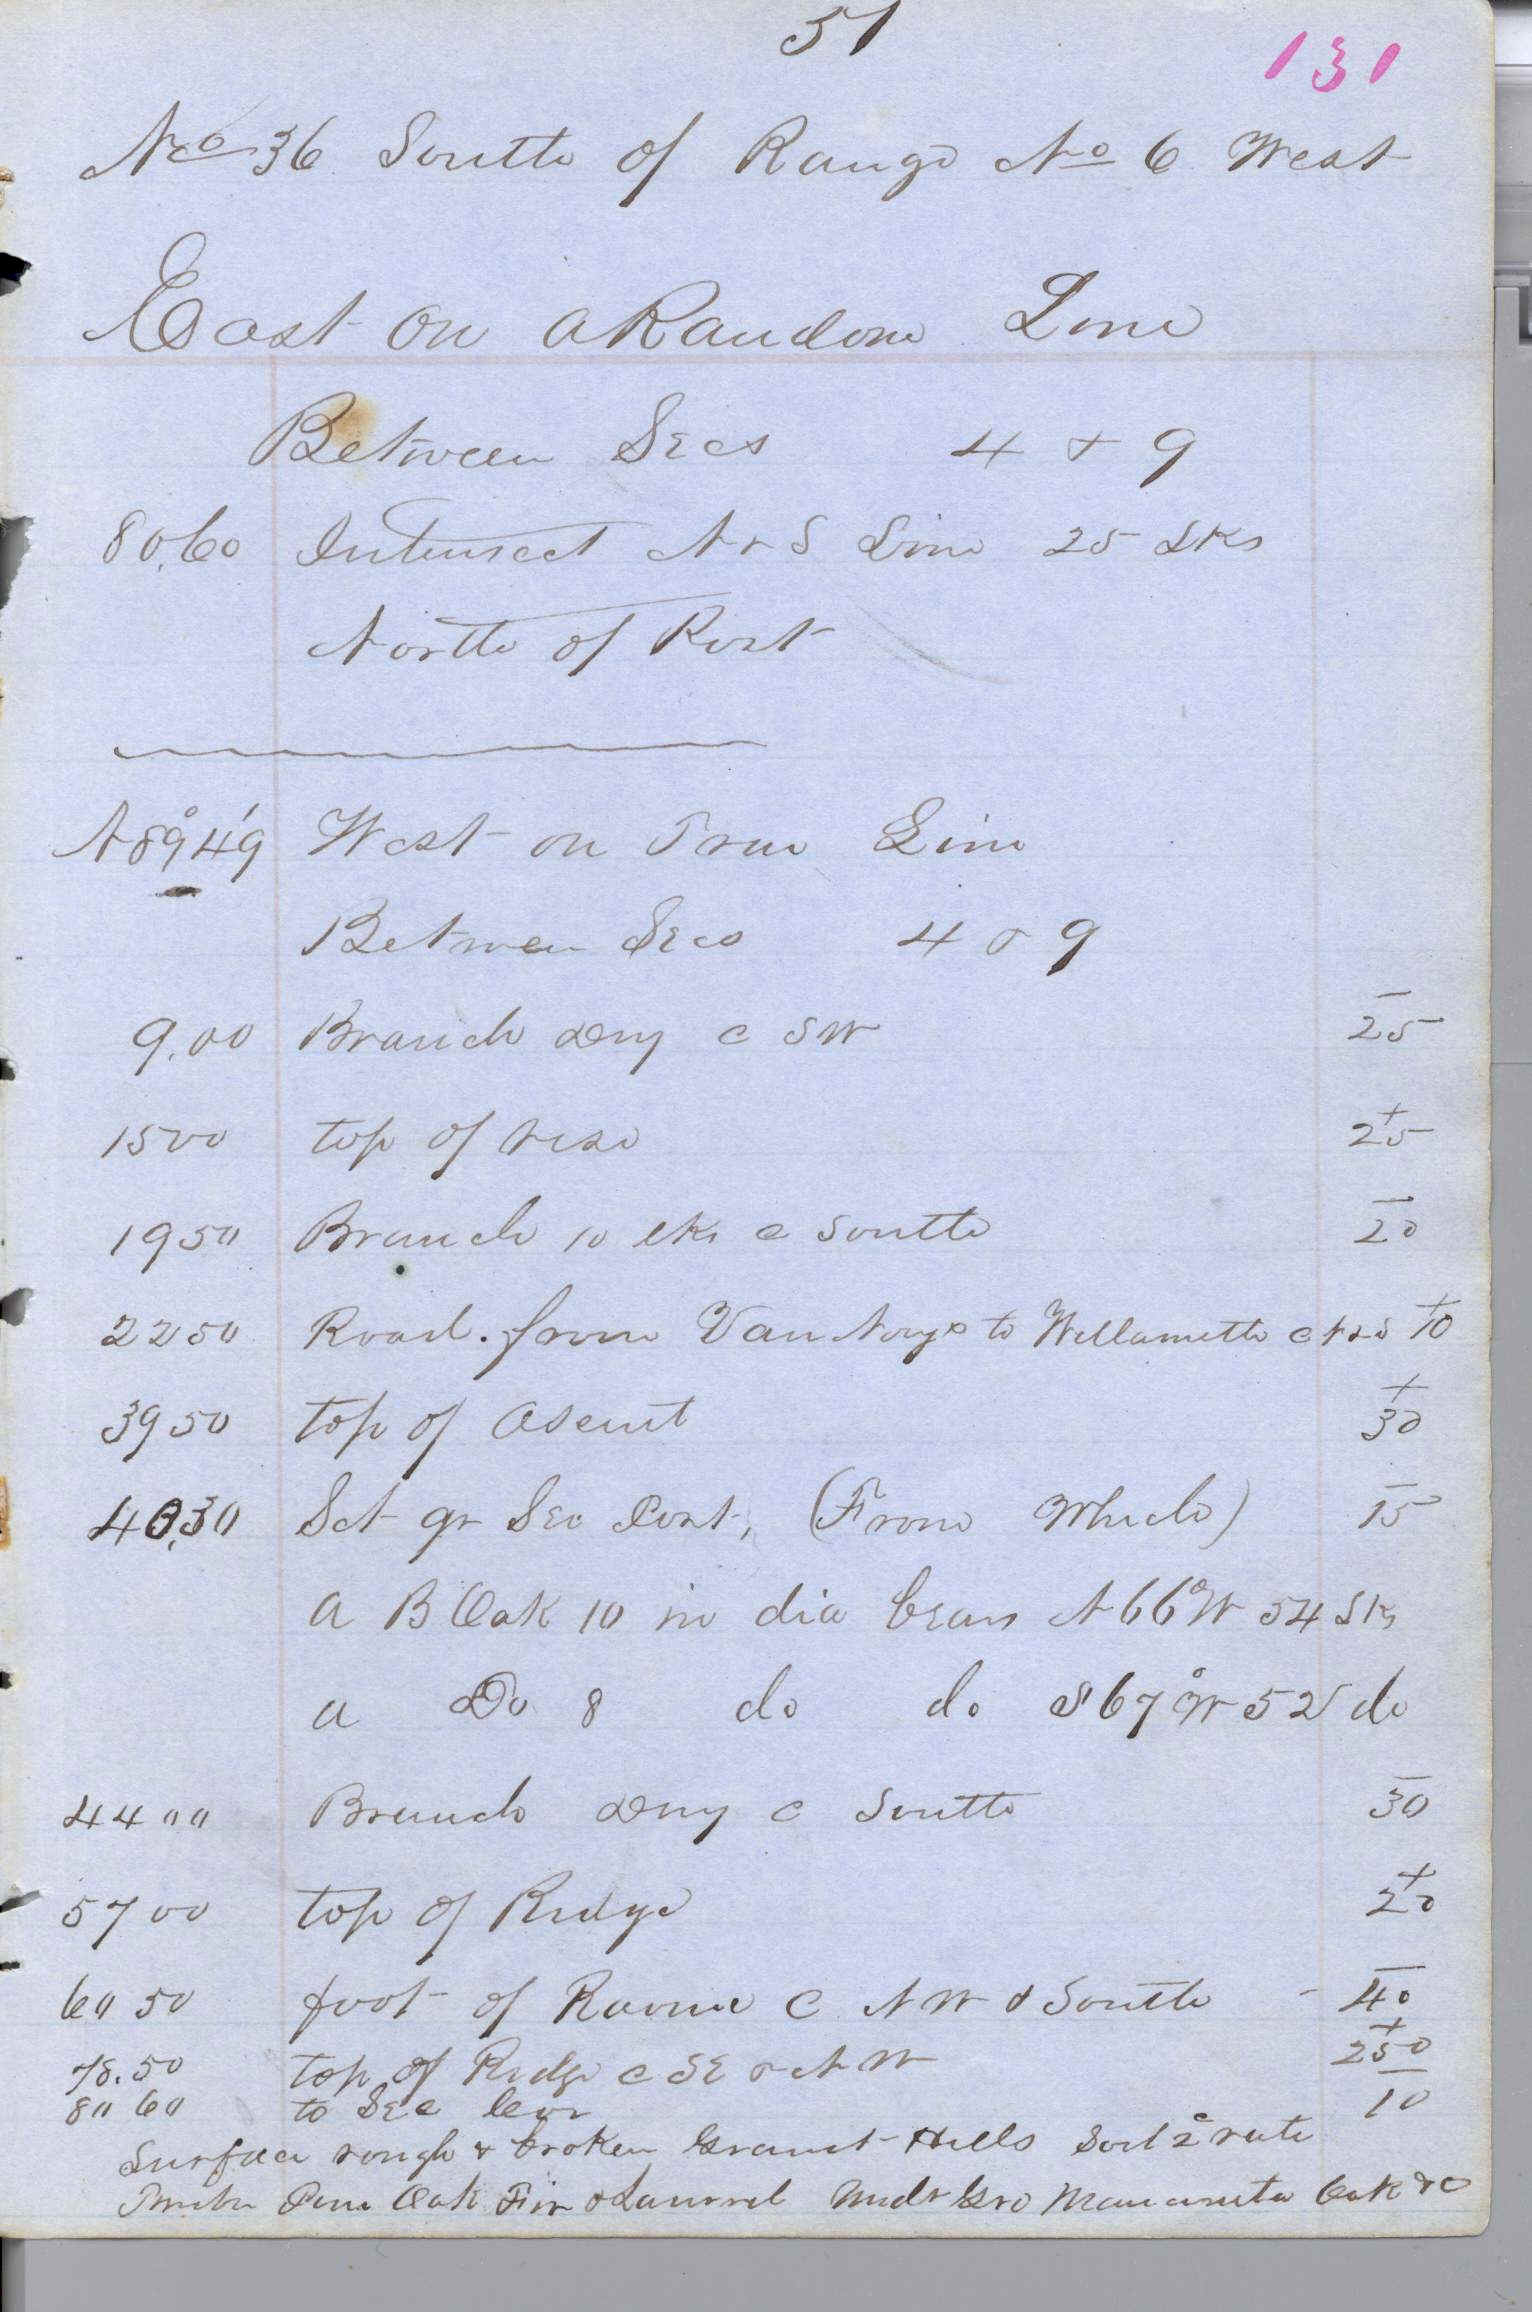 51
131
No 36 South of Range No 6 West
East on a Random Line
Between Secs 4 & 9
80.60 Intersect N & S Line 25 Lks
North of Post
N 89° 49' West on True Line
Between Secs 4 & 9
9.00 Branch Dry c SW - 25
15 00 top of rise + 25
19 50 Branch 10 lks c South - 20
22 50 Road from Van Noys to Willamette c N & S + 10
39 50 top of Asent + 30
40.30 Set qr Sec Post, (From Which) - 15
a B Oak 10 in dia bears N 66° W 54 Lks
a Do 8 do do S 67° W 52 do
44 00 Branch Dry c South - 30
57 00 top of Ridge + 20
60 50 foot of Ravine c NW & South - 40
78.50 top of Ridge c SE & NW + 250
80 60 to Sec Cor - 10
Surface rough & broken Granit Hills Soil 2 rate
Timber Pine Oak Fir & Laurel Undr Gro Manzanita Oak &c